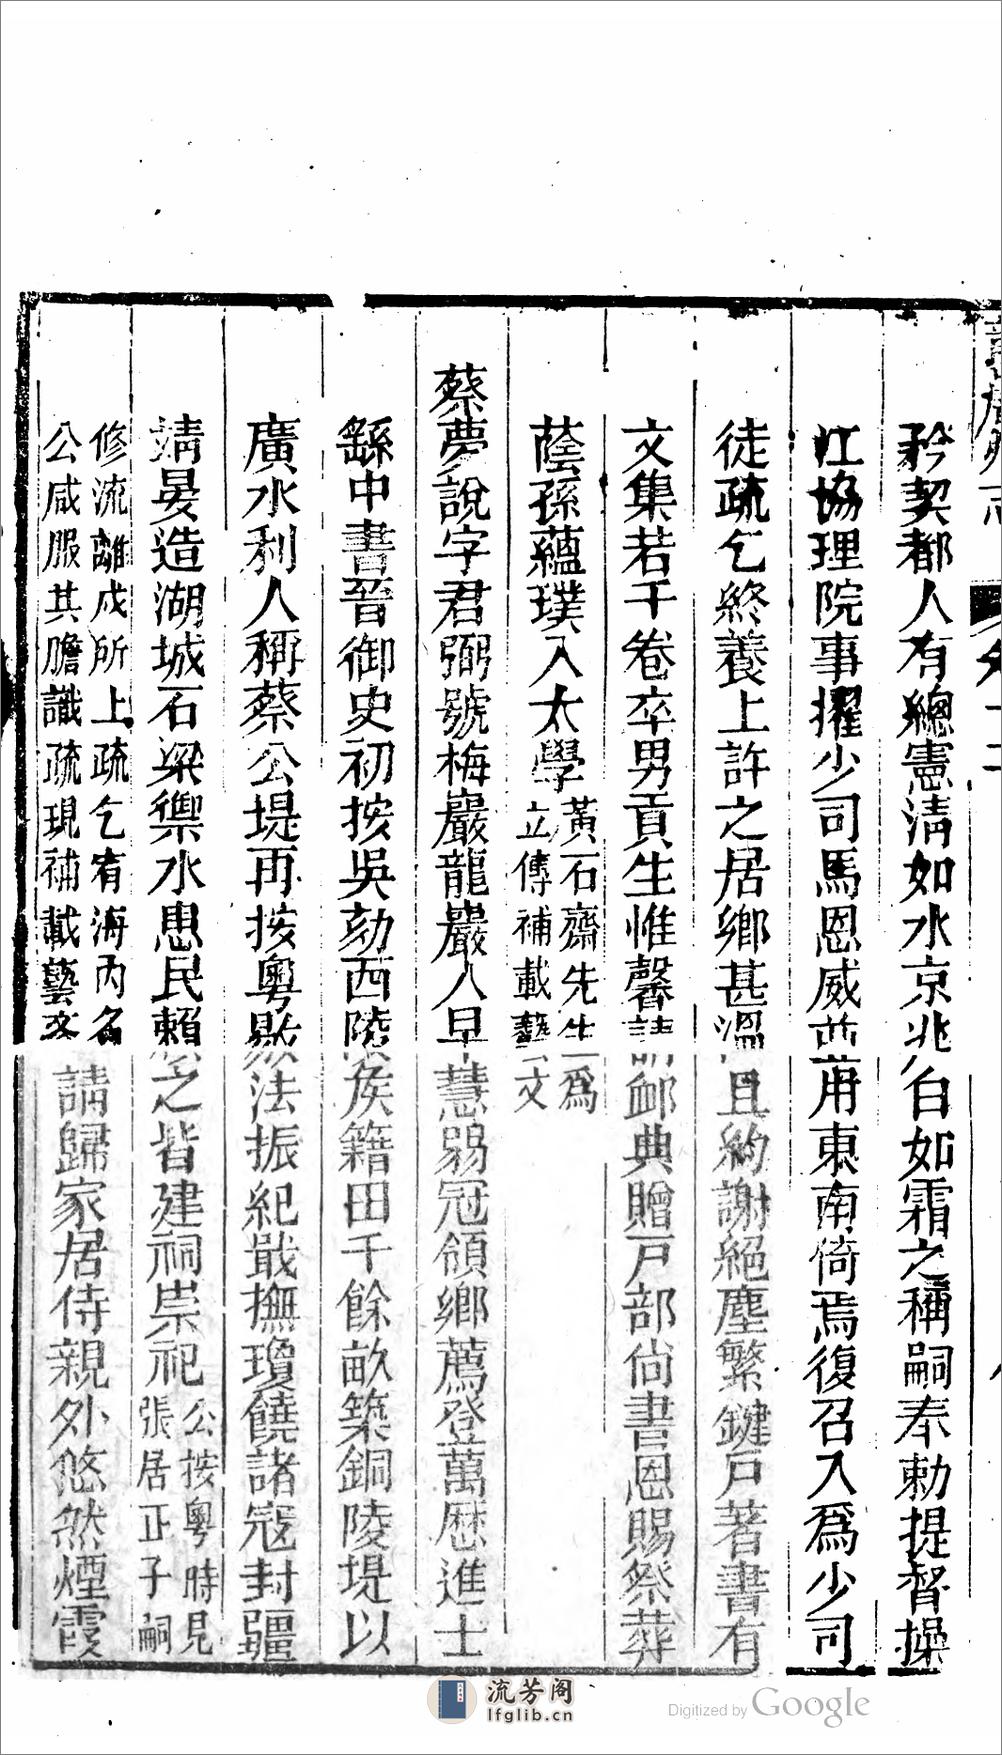 矜契都人有總憲清如水京兆白如霜之稱嗣奉勅提督操
江協理院事擢少司馬恩威並用東南倚焉復召入爲少司
徒疏乞終養上許之居鄉甚溫且約謝絕塵繁鍵戸著書有
文集若干卷卒男貢生惟馨請䘏典贈戸部尚書恩賜祭葬
蔭孫蘊璞入太學黃石齋先生爲
立傳補載藝文
蔡夢說字君弼號梅巖龍巖人早慧弱冠領鄉薦登萬歷進士
繇中書晉御史初按吳劾西陵侯籍田千餘畝築銅陵堤以
廣水利人稱蔡公堤再按粵勵法振紀戢撫瓊饒諸寇封疆
靖晏造湖城石梁禦水患民賴之皆建祠崇祀公按粵時見
張居正子嗣
修流離戍所上疏乞宥海內名
公咸服其膽識疏現補載藝文
請歸家居侍親外悠然煙霞
流芳阁
lfglib.cn
Digitized by Google